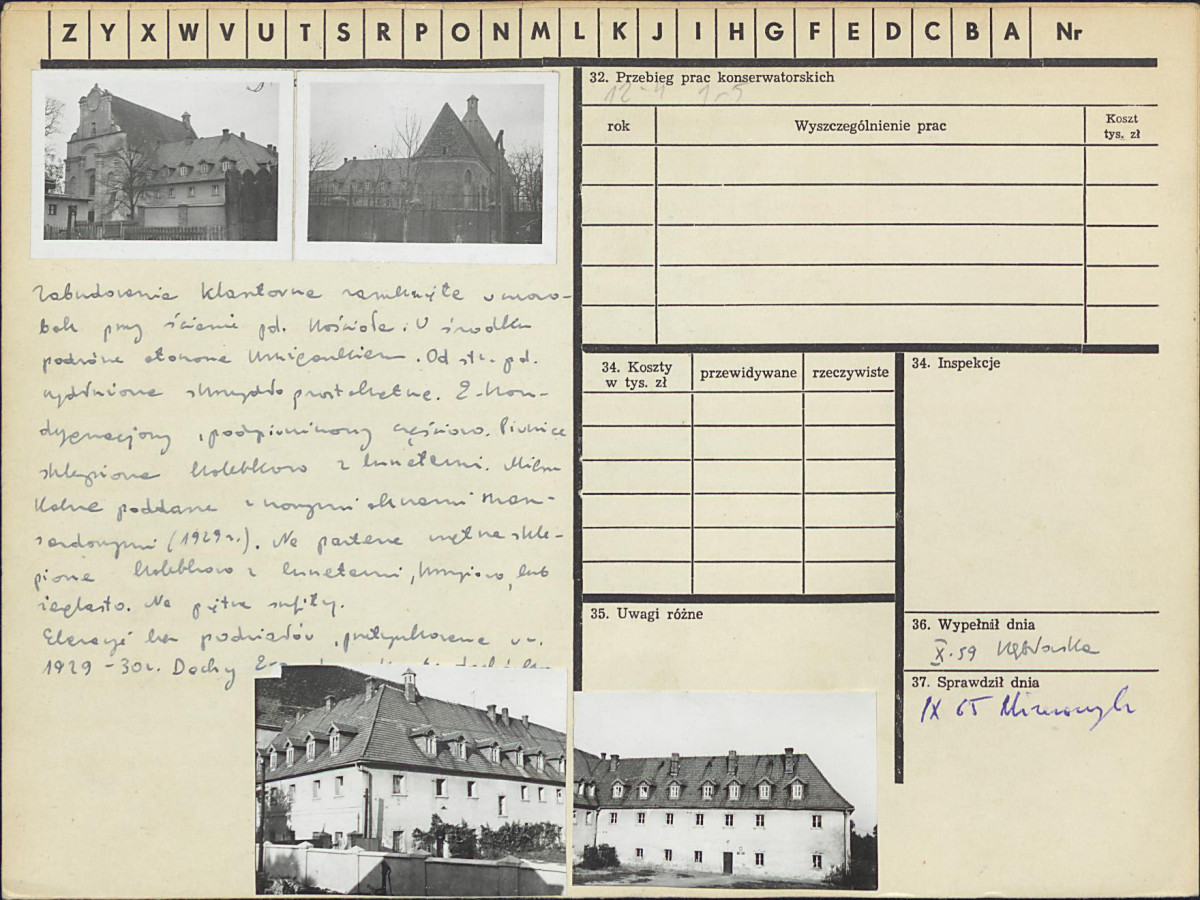 Z Y X W V U T S R P O N M L K J I H G F E D C B A Nr
Zabudowania klasztorne zamknięte czworo-
bok przy ścianie pd. kościoła. W środku
podwórze otoczone krużgankiem. Od str. pd.
wydłużone skrzydło prostokątne. 2-kon-
dygnacjowy, podpiwniczony częściowo. Piwnice
sklepione kolebkowo z lunetami.
poddasze z nowymi oknami man-
sardowymi (1929 r.). Na parterze wnętrza skle-
pione kolebkowo z lunetami, krzyżowo, lub
żaglasto. Na piętrze sufity.
Elewacje bez podziałów, przetynkowane w r.
1929-30r. Dachy 2-
32. Przebieg prac konserwatorskich
12-4 1-5
rok Wyszczególnienie prac Koszt
tys. zł
34. Koszty
w tys. zł przewidywane rzeczywiste
34. Inspekcje
35. Uwagi różne
36. Wypełnił dnia
X.59
37. Sprawdził dnia
IX 65